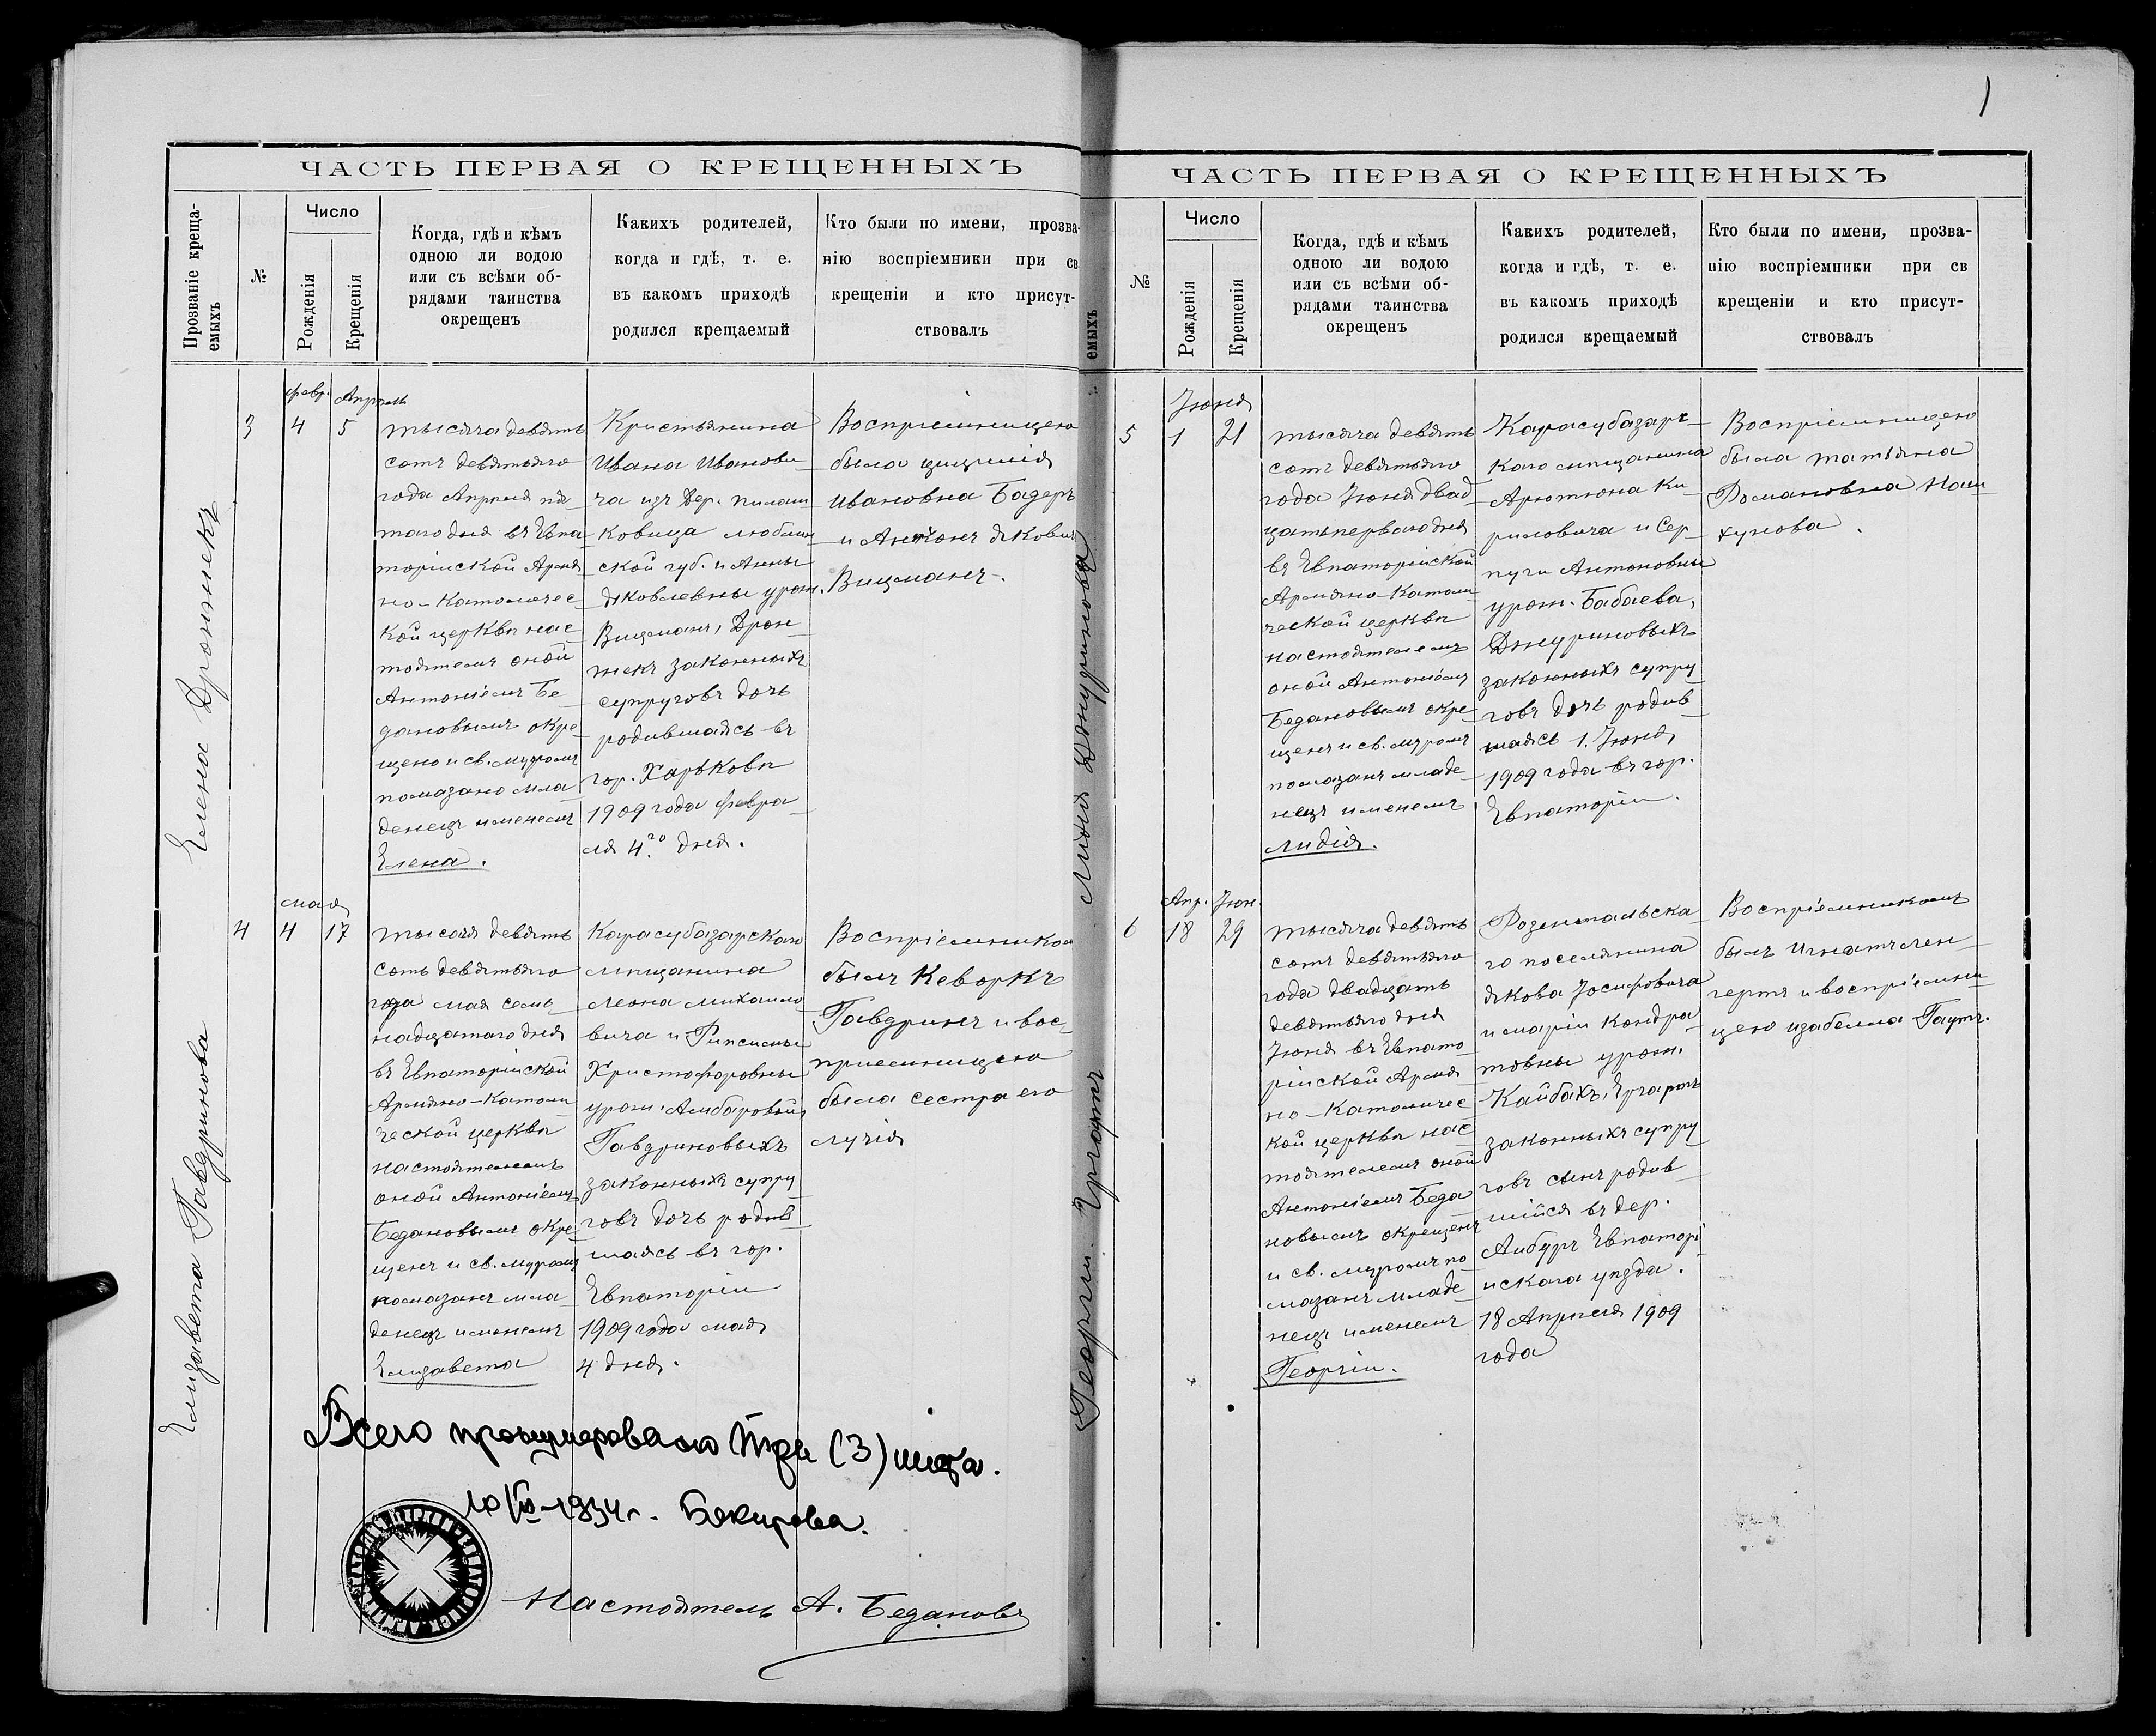 ЧАСТЬ ПЕРВАЯ О КРЕЩЕННЫХЪ
Прозваніе креща-
емыхъ
№
Число
Рожденія
Крещенія
Когда, гдѣ и кѣмъ
одною ли водою
или съ всѣми об-
рядами таинства
окрещенъ
Какихъ родителей,
когда и гдѣ, т. е.
въ какомъ приходѣ
родился крещаемый
Кто были по имени, прозва-
нію воспріемники при св
крещеніи и кто присут-
ствовалъ
Елена Дронжекъ
3
февр.
4
Апрѣль
5
тысяча девять
сотъ девятаго
года Апрѣля пя
таго дня въ Евпа
торійской Армя
но-Католичес
кой церкви нас
тоятелемъ оной
Антоніемъ Бе
дановымъ окре
щено и св. мѵромъ
помазано мла
денецъ именемъ
Елена.
Кристьянина
Ивана Иванови
ча изъ дер.
ковица люблин
ской губ. и Анны
Яковлевны урож.
Вицманъ, Дрон
жекъ законныхъ
супруговъ дочь
родившаясь въ
гор. Харьковѣ
1909 года февра
ля 4го дня.
Воспріемницею
была цицилія
Ивановна Бадеръ
и Антонъ Якови
Вицманъ.
Елизавета Гавдринова
4
мая
4
17
тысяча девять
сотъ девятаго
года мая семь
надцатаго дня
въ Евпаторійской
Армяно-Католи
ческой церкви
настоятелемъ
оной Антоніемъ
Бедановымъ окре
щенъ и св. мѵромъ
помазанъ мла
денецъ именемъ
Елизавета
Карасубазарскаго
мѣщанина
Леона Михайло
вича и Рипсимы
Христофоровны
урож. Амбаровой,
Гавдриновыхъ
законныхъ супру
говъ дочь родив
шаясь въ гор.
Евпаторіи
1909 года мая
4 дня.
Воспріемником
былъ Кеворкъ
Гавдринъ и вос
приемницею
была сестра его
лучія
Всего пронумеровано три (3) листа.
10/VII-1934г. Бекирова.
Настоятель А. Бедановъ
1
ЧАСТЬ ПЕРВАЯ О КРЕЩЕННЫХЪ
емыхъ
№
Число
Рожденія
Крещенія
Когда, гдѣ и кѣмъ
одною ли водою
или съ всѣми об-
рядами таинства
окрещенъ
Какихъ родителей,
когда и гдѣ, т. е.
въ какомъ приходѣ
родился крещаемый
Кто были по имени, прозва-
нію воспріемники при св
крещеніи и кто присут-
ствовалъ
Лидія Джуринова
5
Іюня
1
21
тысяча девять
сотъ девятаго
года Іюня двад
цать перваго дня
въ Евпаторійской
Армяно-Католи
ческой церкви
настоятелемъ
оной Антоніемъ
Бедановымъ окре
щенъ и св. мѵромъ
помазанъ младе
нецъ именемъ
Лидія.
Карасубазарс
каго мѣщанина
Арютюна Ки
риловича и Сер
пуги Антоновны
урож. Бабаева,
Джуриновыхъ
законныхъ супру
говъ дочь родив
шаясь 1. Іюня
1909 года въ гор.
Евпаторіи.
Воспріемницею
была татьяна
Романовна
хунова.
Георгій Ергартъ
6
Апр.
18
Іюн.
29
тысяча девять
сотъ девятаго
года двадцать
девятаго дня
Іюня въ Евпато
рійской Армя
но-Католичес
кой церкви нас
тоятелемъ оной
Антоніемъ Беда
новымъ окрещенъ
и св. мѵромъ по
мазанъ младе
нецъ именемъ
Георгій.
Розентальска
го поселянина
Якова Іосифовича
и маріи Кондра
товны урож.
Кайбахъ, Ергартъ
законныхъ супру
говъ сынъ родив
шійся въ дер.
Аибуръ Евпаторі
искаго уѣзда.
18 Апрѣля 1909
года
Воспріемникомъ
былъ Игнатъ Лен
гертъ и воспріемни
цею изабелла Гаутъ.